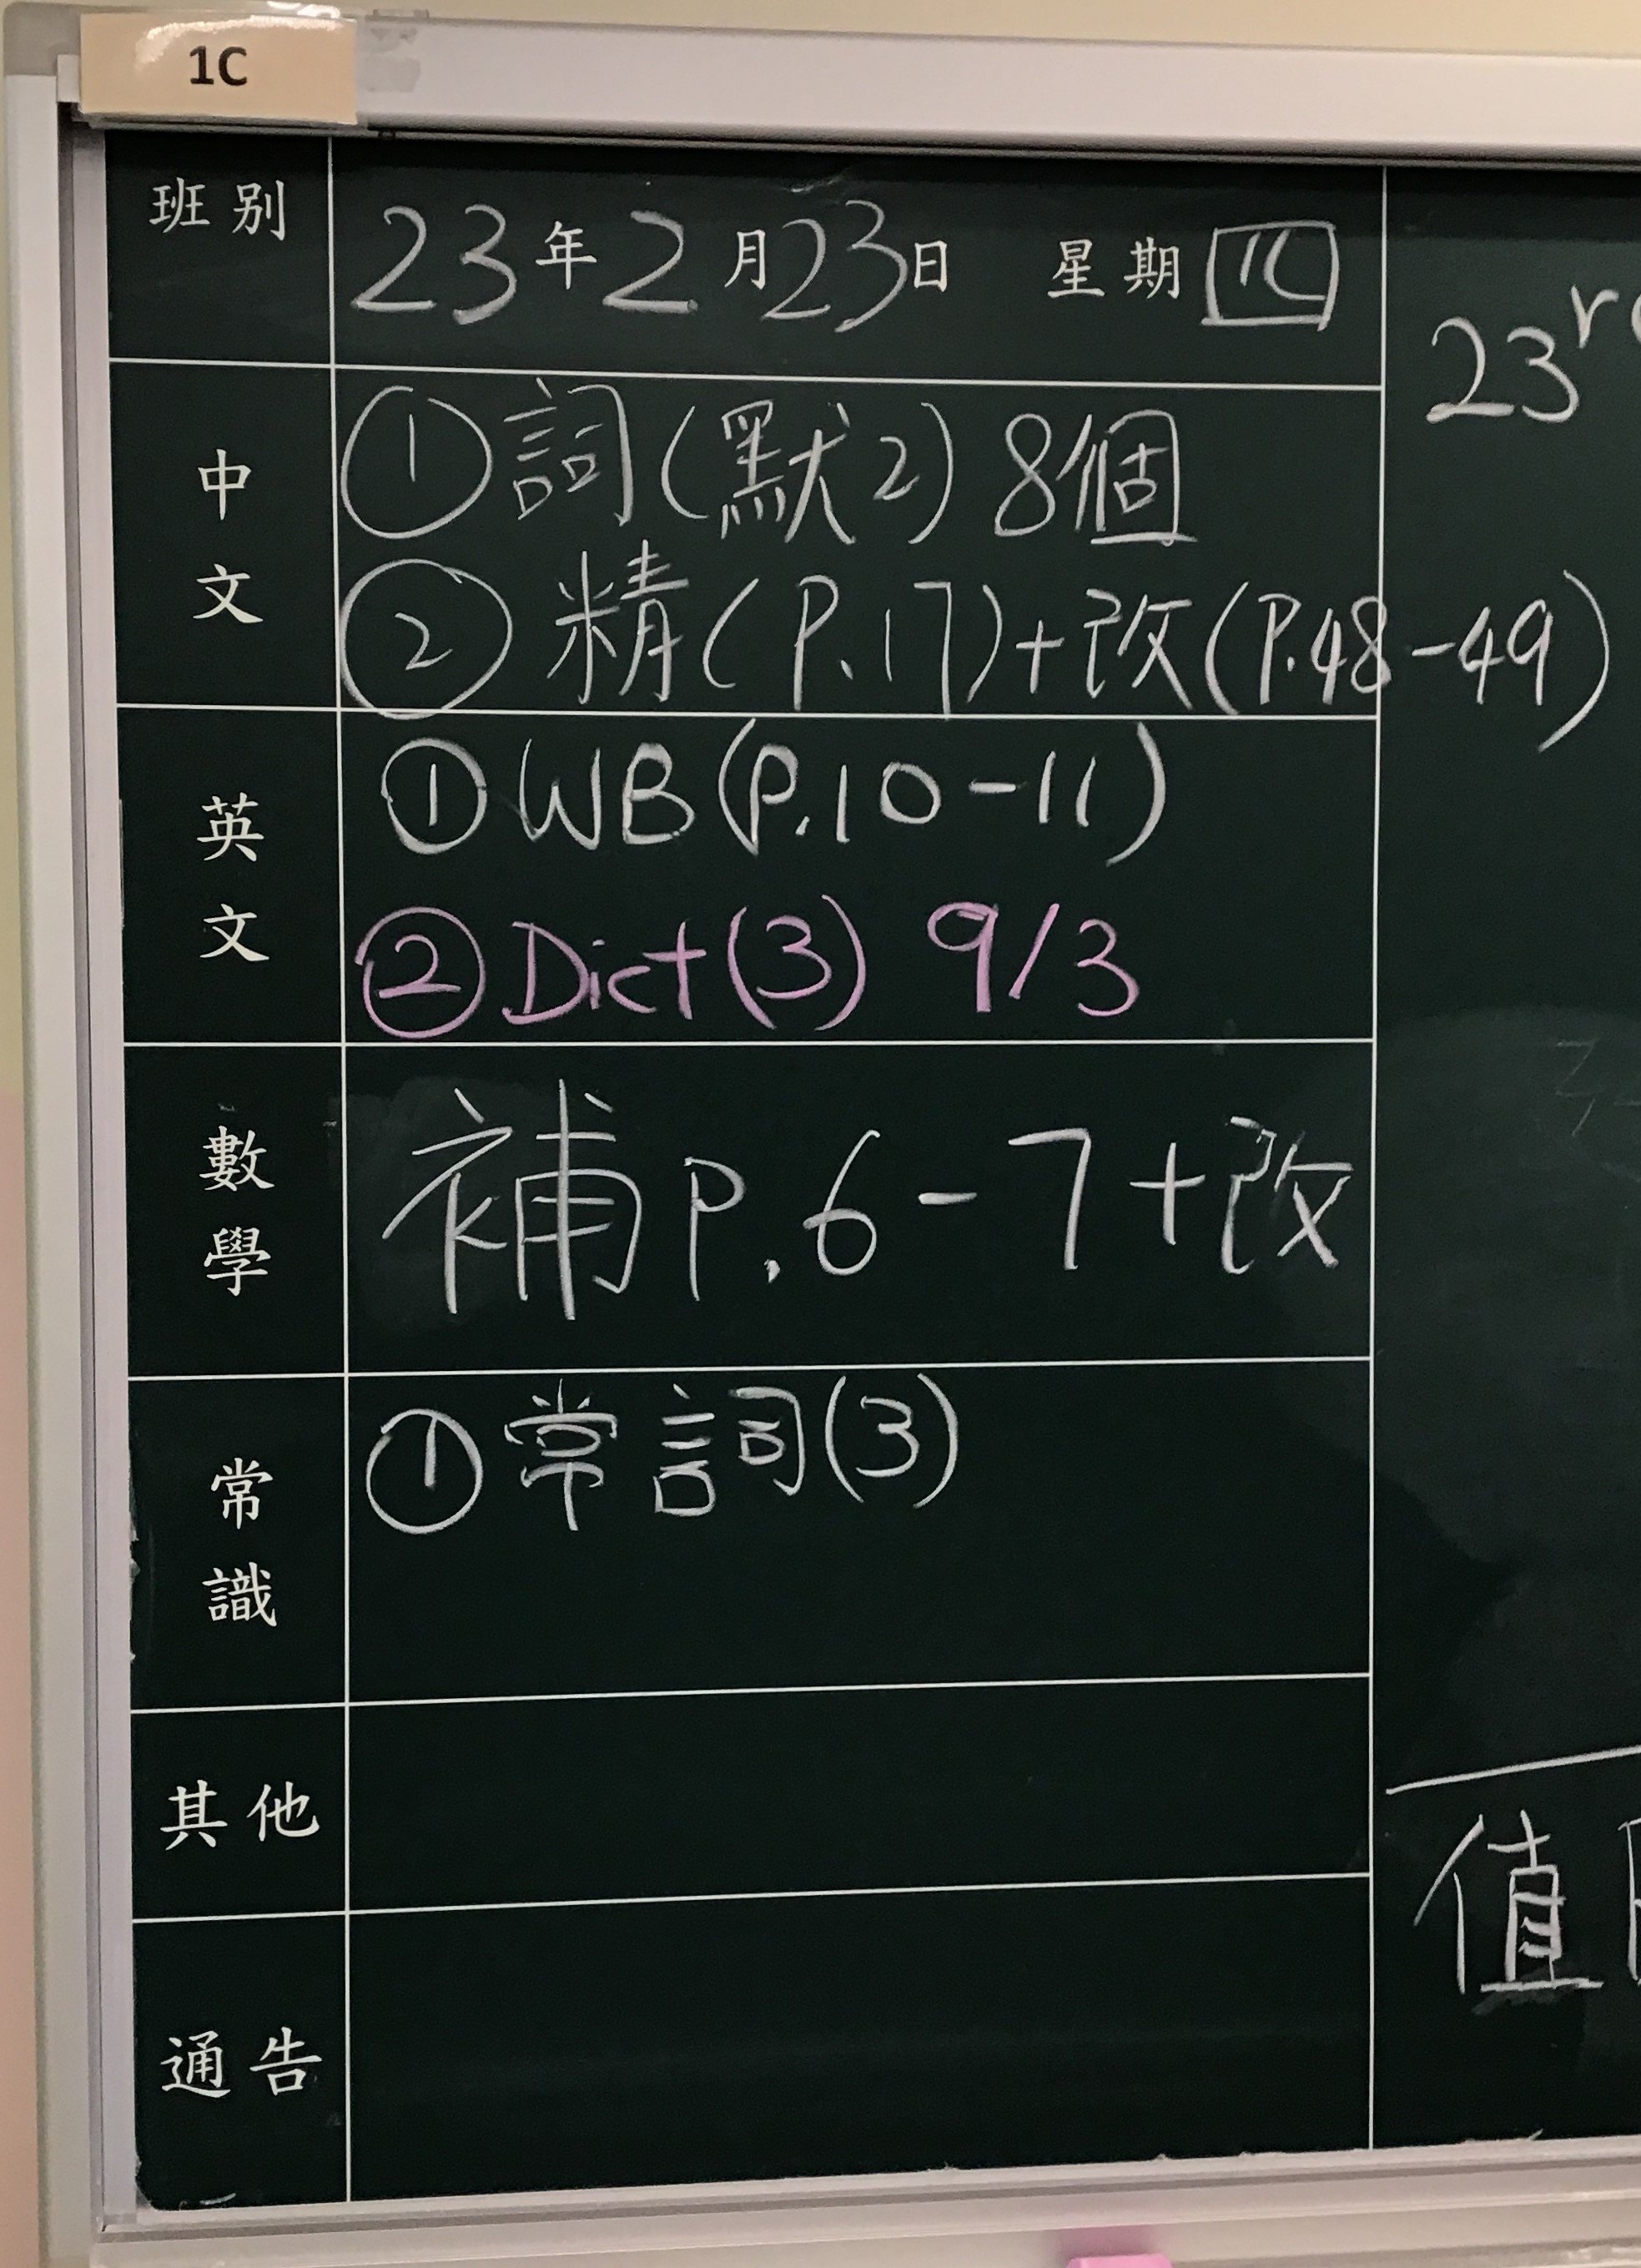 1C
班別
23年2月23日 星期四
23rd
中文
①詞(默2) 8個
②精(P.17)+改(P.48-49)
英文
①WB(P.10-11)
②Dict(3) 9/3
數學
補P.6-7+改
常識
①常詞(3)
其他
值
通告